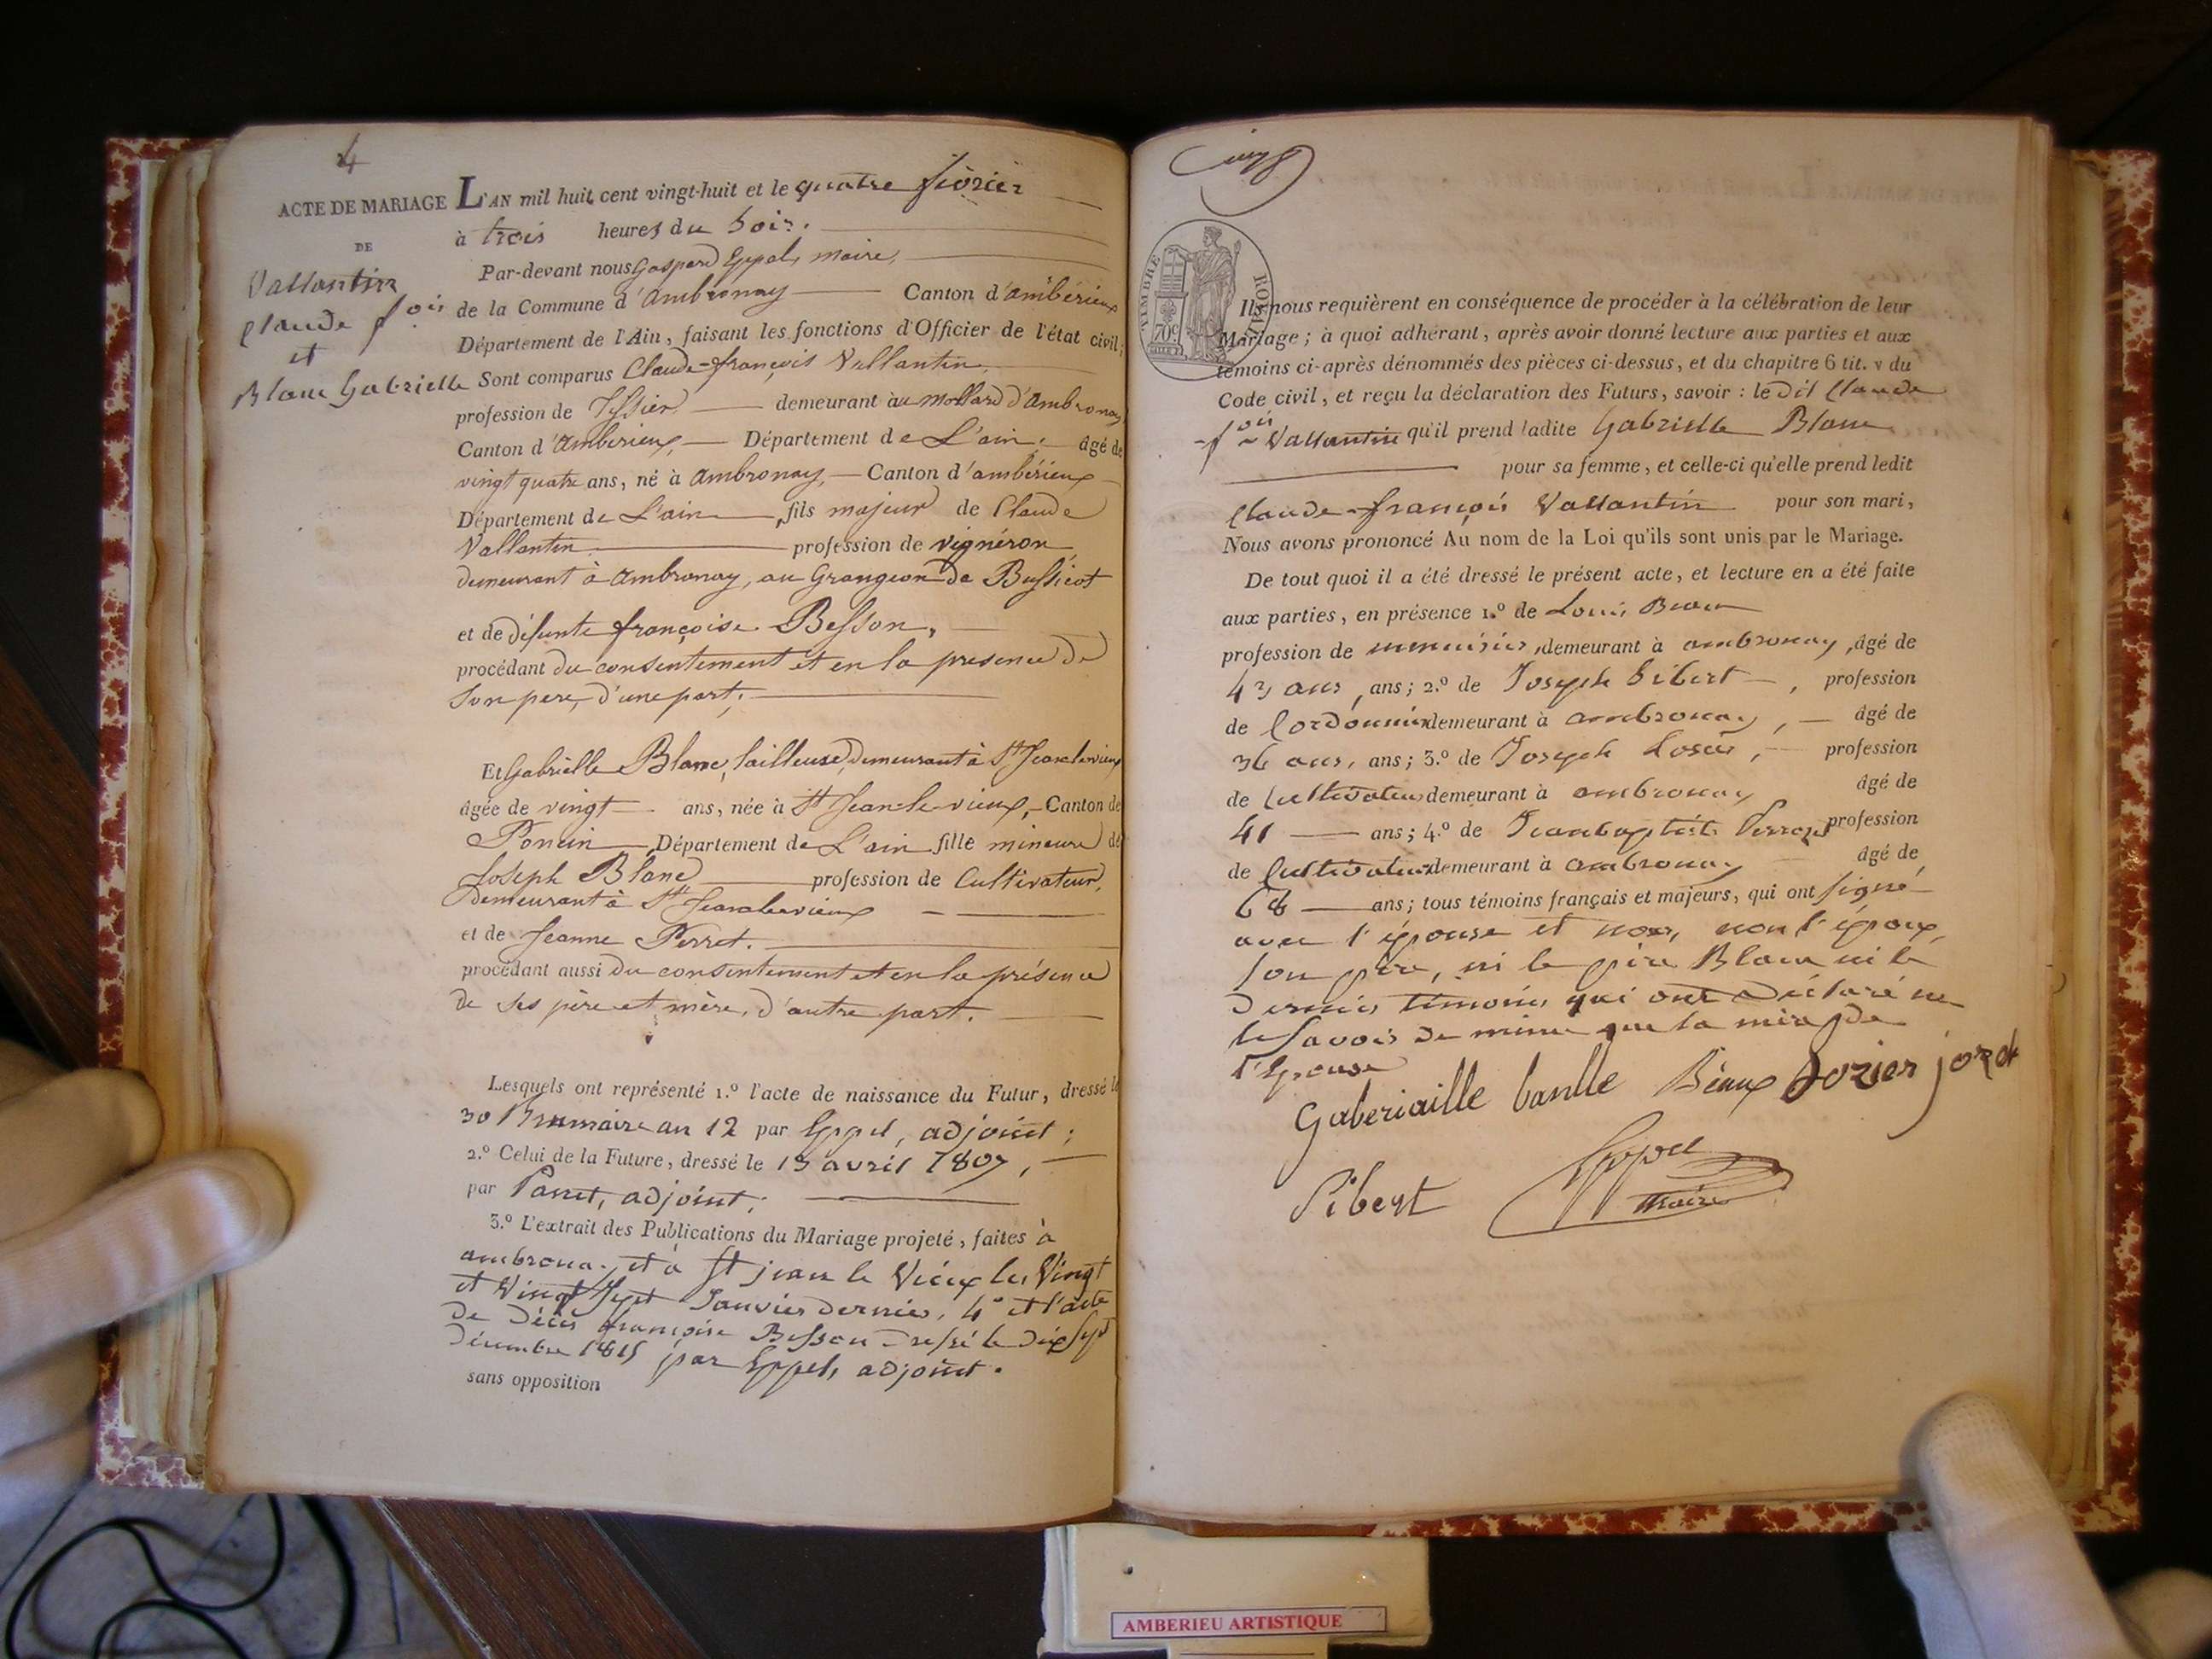 4
ACTE DE MARIAGE
DE
Vallantin
Claude fois
et
Blanc Gabrielle
L'AN mil huit cent vingt-huit et le quatre février
à trois heures du soir.
Par-devant nous Gaspard Eppel, maire,
de la Commune d'Ambronay Canton d'ambérieux
Département de l'Ain, faisant les fonctions d'Officier de l'état civil;
Sont comparus Claude-françois Vallantin,
profession de Tissier demeurant au Mollard d'Ambronay
Canton d'Amberieux, Département de L'ain, âgé de
vingt quatre ans, né à Ambronay, Canton d'ambérieux
Département de L'ain, fils majeur de Claude
Vallantin profession de vignéron
demeurant à Ambronay, au Grangeon de Bussicot
et de défunte françoise Besson,
procédant du consentement et en la presence de
son pere, d'une part;
Et Gabrielle Blanc, tailleuse, demeurant à St Jeanlevieux
âgée de vingt ans, née à St Jean-le-vieux, Canton de
Poncin Département de L'ain fille mineure de
Joseph Blanc profession de Cultivateur,
Demeurant à St Jeanlevieux
et de Jeanne Perret.
procédant aussi du consentement et en la présence
de ses père et mère, d'autre part.
Lesquels ont représenté 1.º l'acte de naissance du Futur, dressé le
30 Brumaire an 12 par Eppel, adjoint;
2.º Celui de la Future, dressé le 13 avril 1807,
par adjoint;
3.º L'extrait des Publications du Mariage projeté, faites à
ambronay et à St jean le Vieux les Vingt
et Vingt Sept Janvier dernier, 4º et l'acte
de Décès françoise Besson dressé le dix Sept
Décembre 1815 par Eppel, adjoint.
sans opposition
TIMBRE ROYAL
70c
Ils nous requièrent en conséquence de procéder à la célébration de leur
Mariage; à quoi adhérant, après avoir donné lecture aux parties et aux
témoins ci-après dénommés des pièces ci-dessus, et du chapitre 6 tit. v du
Code civil, et reçu la déclaration des Futurs, savoir : le dit Claude
fois Vallantin qu'il prend ladite Gabrielle Blanc
pour sa femme, et celle-ci qu'elle prend ledit
Claude-françois Vallantin pour son mari,
Nous avons prononcé Au nom de la Loi qu'ils sont unis par le Mariage.
De tout quoi il a été dressé le présent acte, et lecture en a été faite
aux parties, en présence 1.º de Louis
profession de menuisier, demeurant à ambronay, âgé de
43 ans, ans; 2.º de Joseph Sibert, profession
de Cordonnier demeurant à ambronay, âgé de
36 ans, ans; 3.º de Joseph profession
de Cultivateur demeurant à ambronay âgé de
41 ans; 4.º de Jeanbaptiste profession
de Cultivateur demeurant à ambronay âgé de
68 ans; tous témoins français et majeurs, qui ont signé
avec l'épouse et nous, non l'époux,
son père, ni le père Blanc ni le
dernier témoin, qui ont déclaré ne
le savoir de même que la mère de
l'Epouse
Gaberiaille banlle Béaux Dozier jozet
Sibert Eppel
maire
AMBERIEU ARTISTIQUE